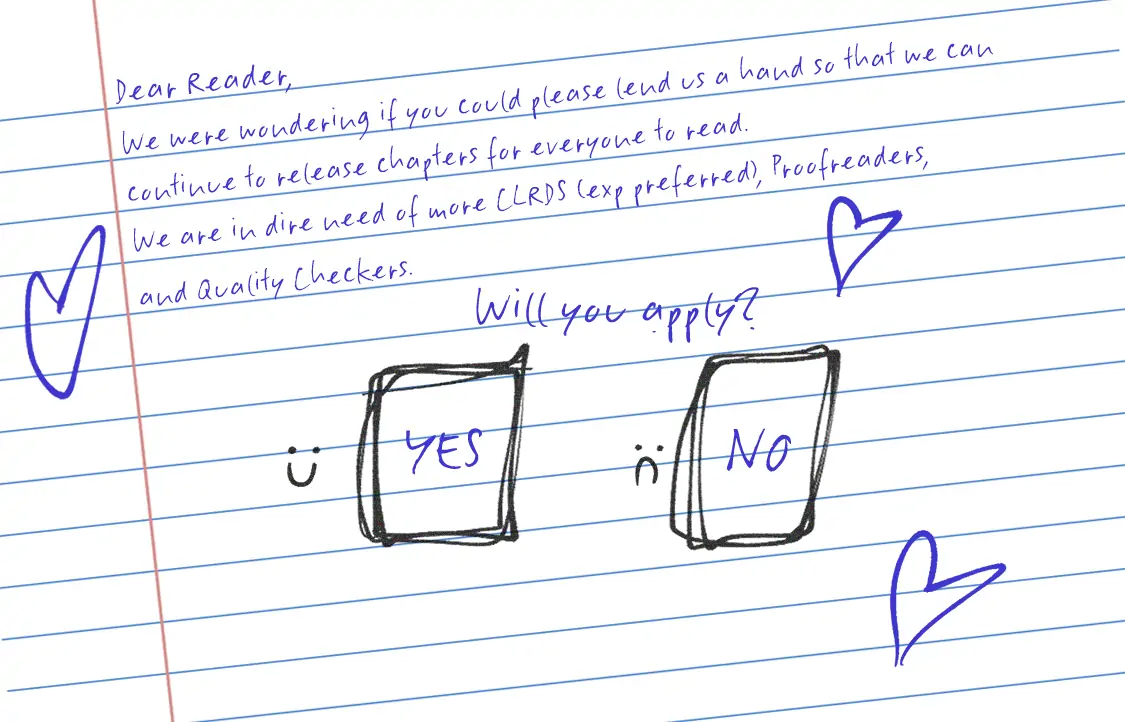 Dear Reader,
We were wondering if you could please lend us a hand so that we can
continue to release chapters for everyone to read.
We are in dire need of more CLRDS (exp preferred), Proofreaders,
and Quality Checkers.
Will you apply?
:) YES
:( NO